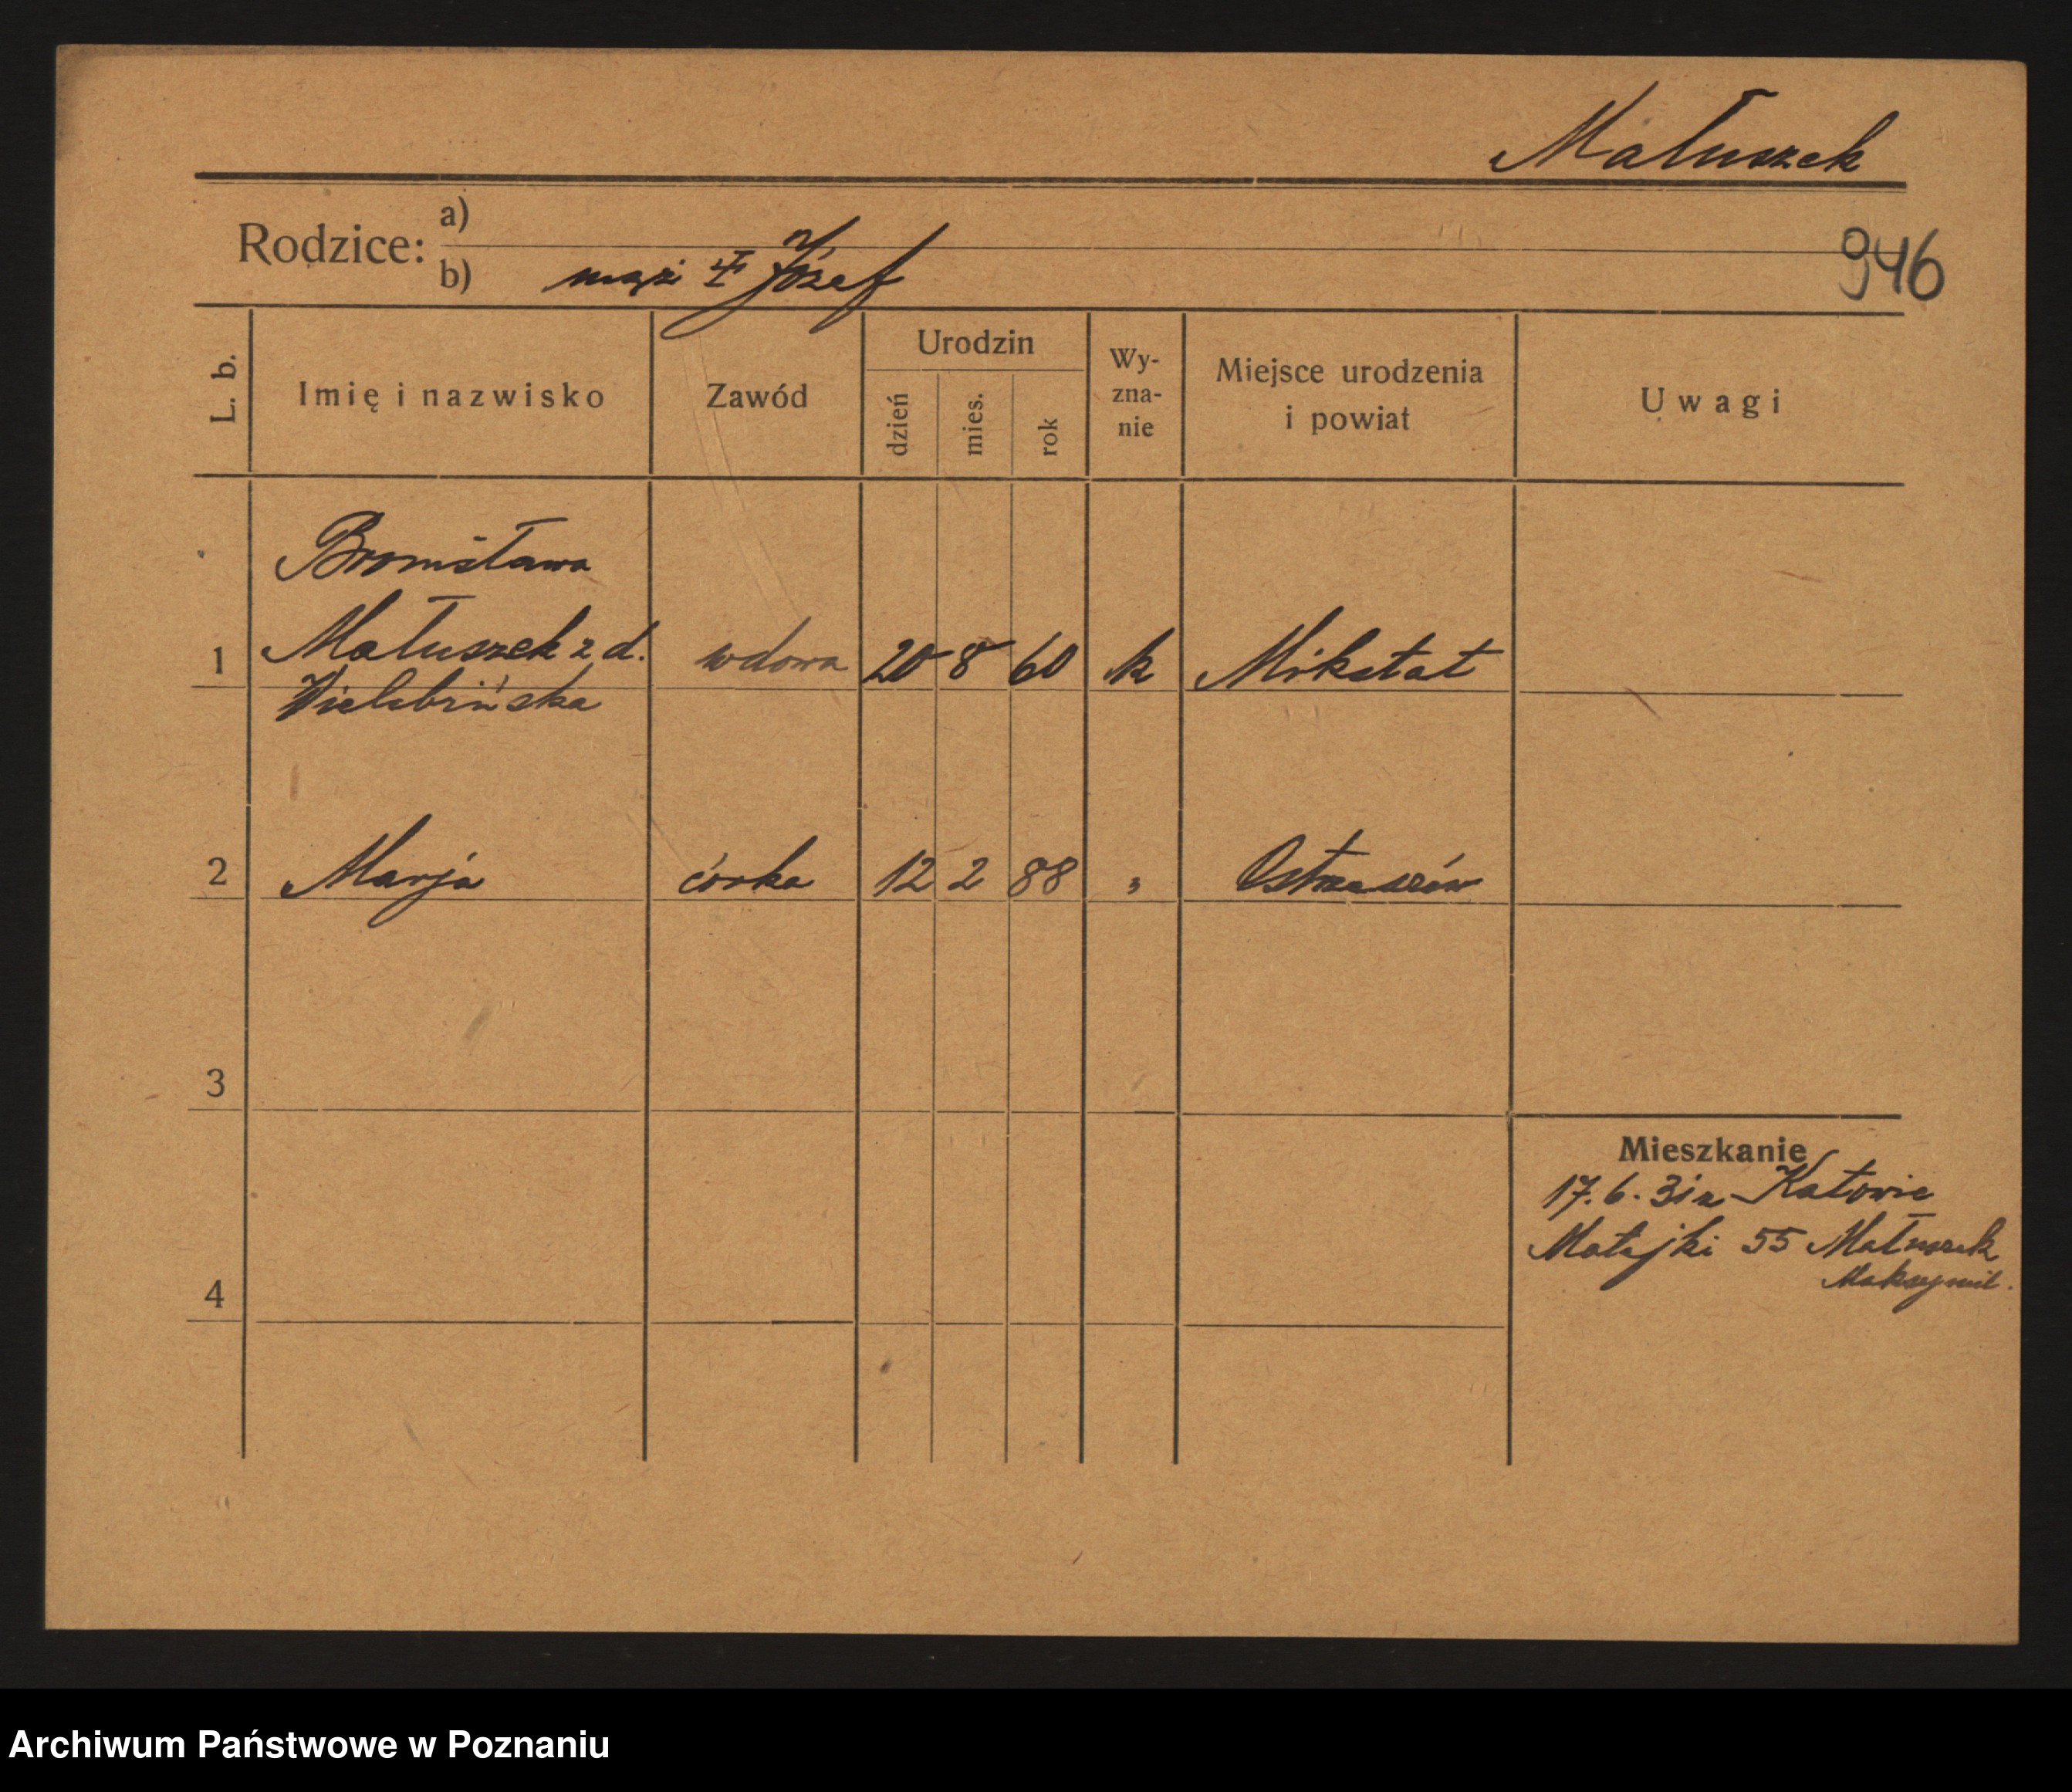 Małuszek
Rodzice: a)
b) mąż † Józef
946
L. b.
Imię i nazwisko
Zawód
Urodzin
dzień
mies.
rok
Wy-
zna-
nie
Miejsce urodzenia
i powiat
Uwagi
Bronisława
1 Małuszek z d. wdowa 20 8 60 k Mikstat
Wielebińska
2 Marja córka 12 2 88 " Ostrzeszów
3
Mieszkanie
17.6.31 z Katowic
Matejki 55 Małuszek
Maksymil.
4
Archiwum Państwowe w Poznaniu